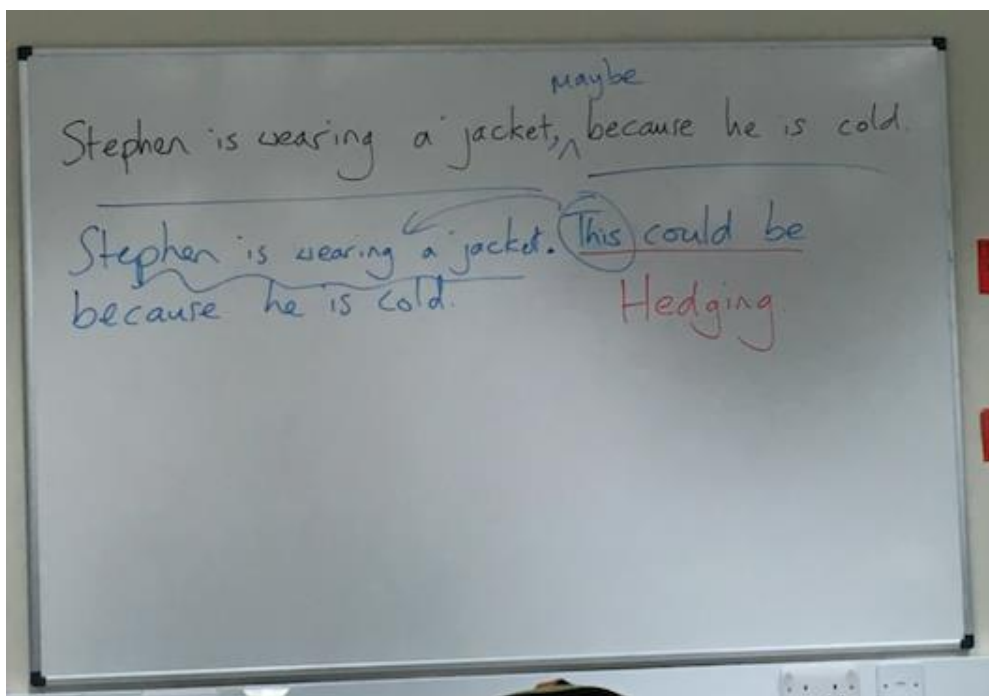 maybe
Stephen is wearing a jacket, because he is cold.
Stephen is wearing a jacket. This could be
because he is cold.
Hedging